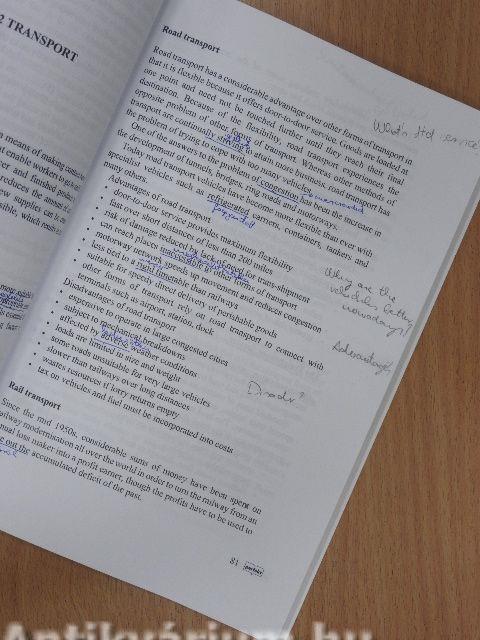 2 TRANSPORT
a means of making
it enable workers to
ver and finished
reduces the
w supplies can
sible, which
Road transport
Road transport has a considerable advantage over other forms of transport in
that it is flexible because it offers door-to-door service. Goods are loaded at
one point and need not be touched further until they reach their final
destination. Because of the flexibility, road transport experiences the
opposite problem of other forms of transport. Whereas other methods of
transport are continually striving to attain more business, road transport has
the problem of trying to cope with too many vehicles.
One of the answers to the problem of congestion has been the increase in
the development of tunnels, bridges, ring roads and motorways.
Today road transport vehicles have become more flexible than ever with
specialist vehicles such as refrigerated carriers, containers, tankers and
many others.
Advantages of road transport
• door-to-door service provides maximum flexibility
• fast over short distances of less than 200 miles
• risk of damage reduced by lack of need for trans-shipment
• can reach places unaccessible to other forms of transport
• motorway network speeds up movement and reduces congestion
• less tied to a rigid timetable than railways
• suitable for speedy direct delivery of perishable goods
• other forms of transport rely on road transport to connect with
terminals such as airport, station, dock
Disadvantages of road transport
• expensive to operate in large congested cities
• subject to mechanical breakdowns
• affected by adverse weather conditions
• loads are limited in size and weight
• some roads unsuitable for very large vehicles
• slower than railways over long distances
• wastes resources if lorry returns empty
• tax on vehicles and fuel must be incorporated into costs
Why are the
vehicles better
nowadays?
Disadv?
Rail transport
Since the mid 1950s, considerable sums of money have been spent on
railway modernisation all over the world in order to turn the railway from an
annual loss maker into a profit earner, though the profits have to be used to
out the accumulated deficit of the past.
81
Antikvárium.hu